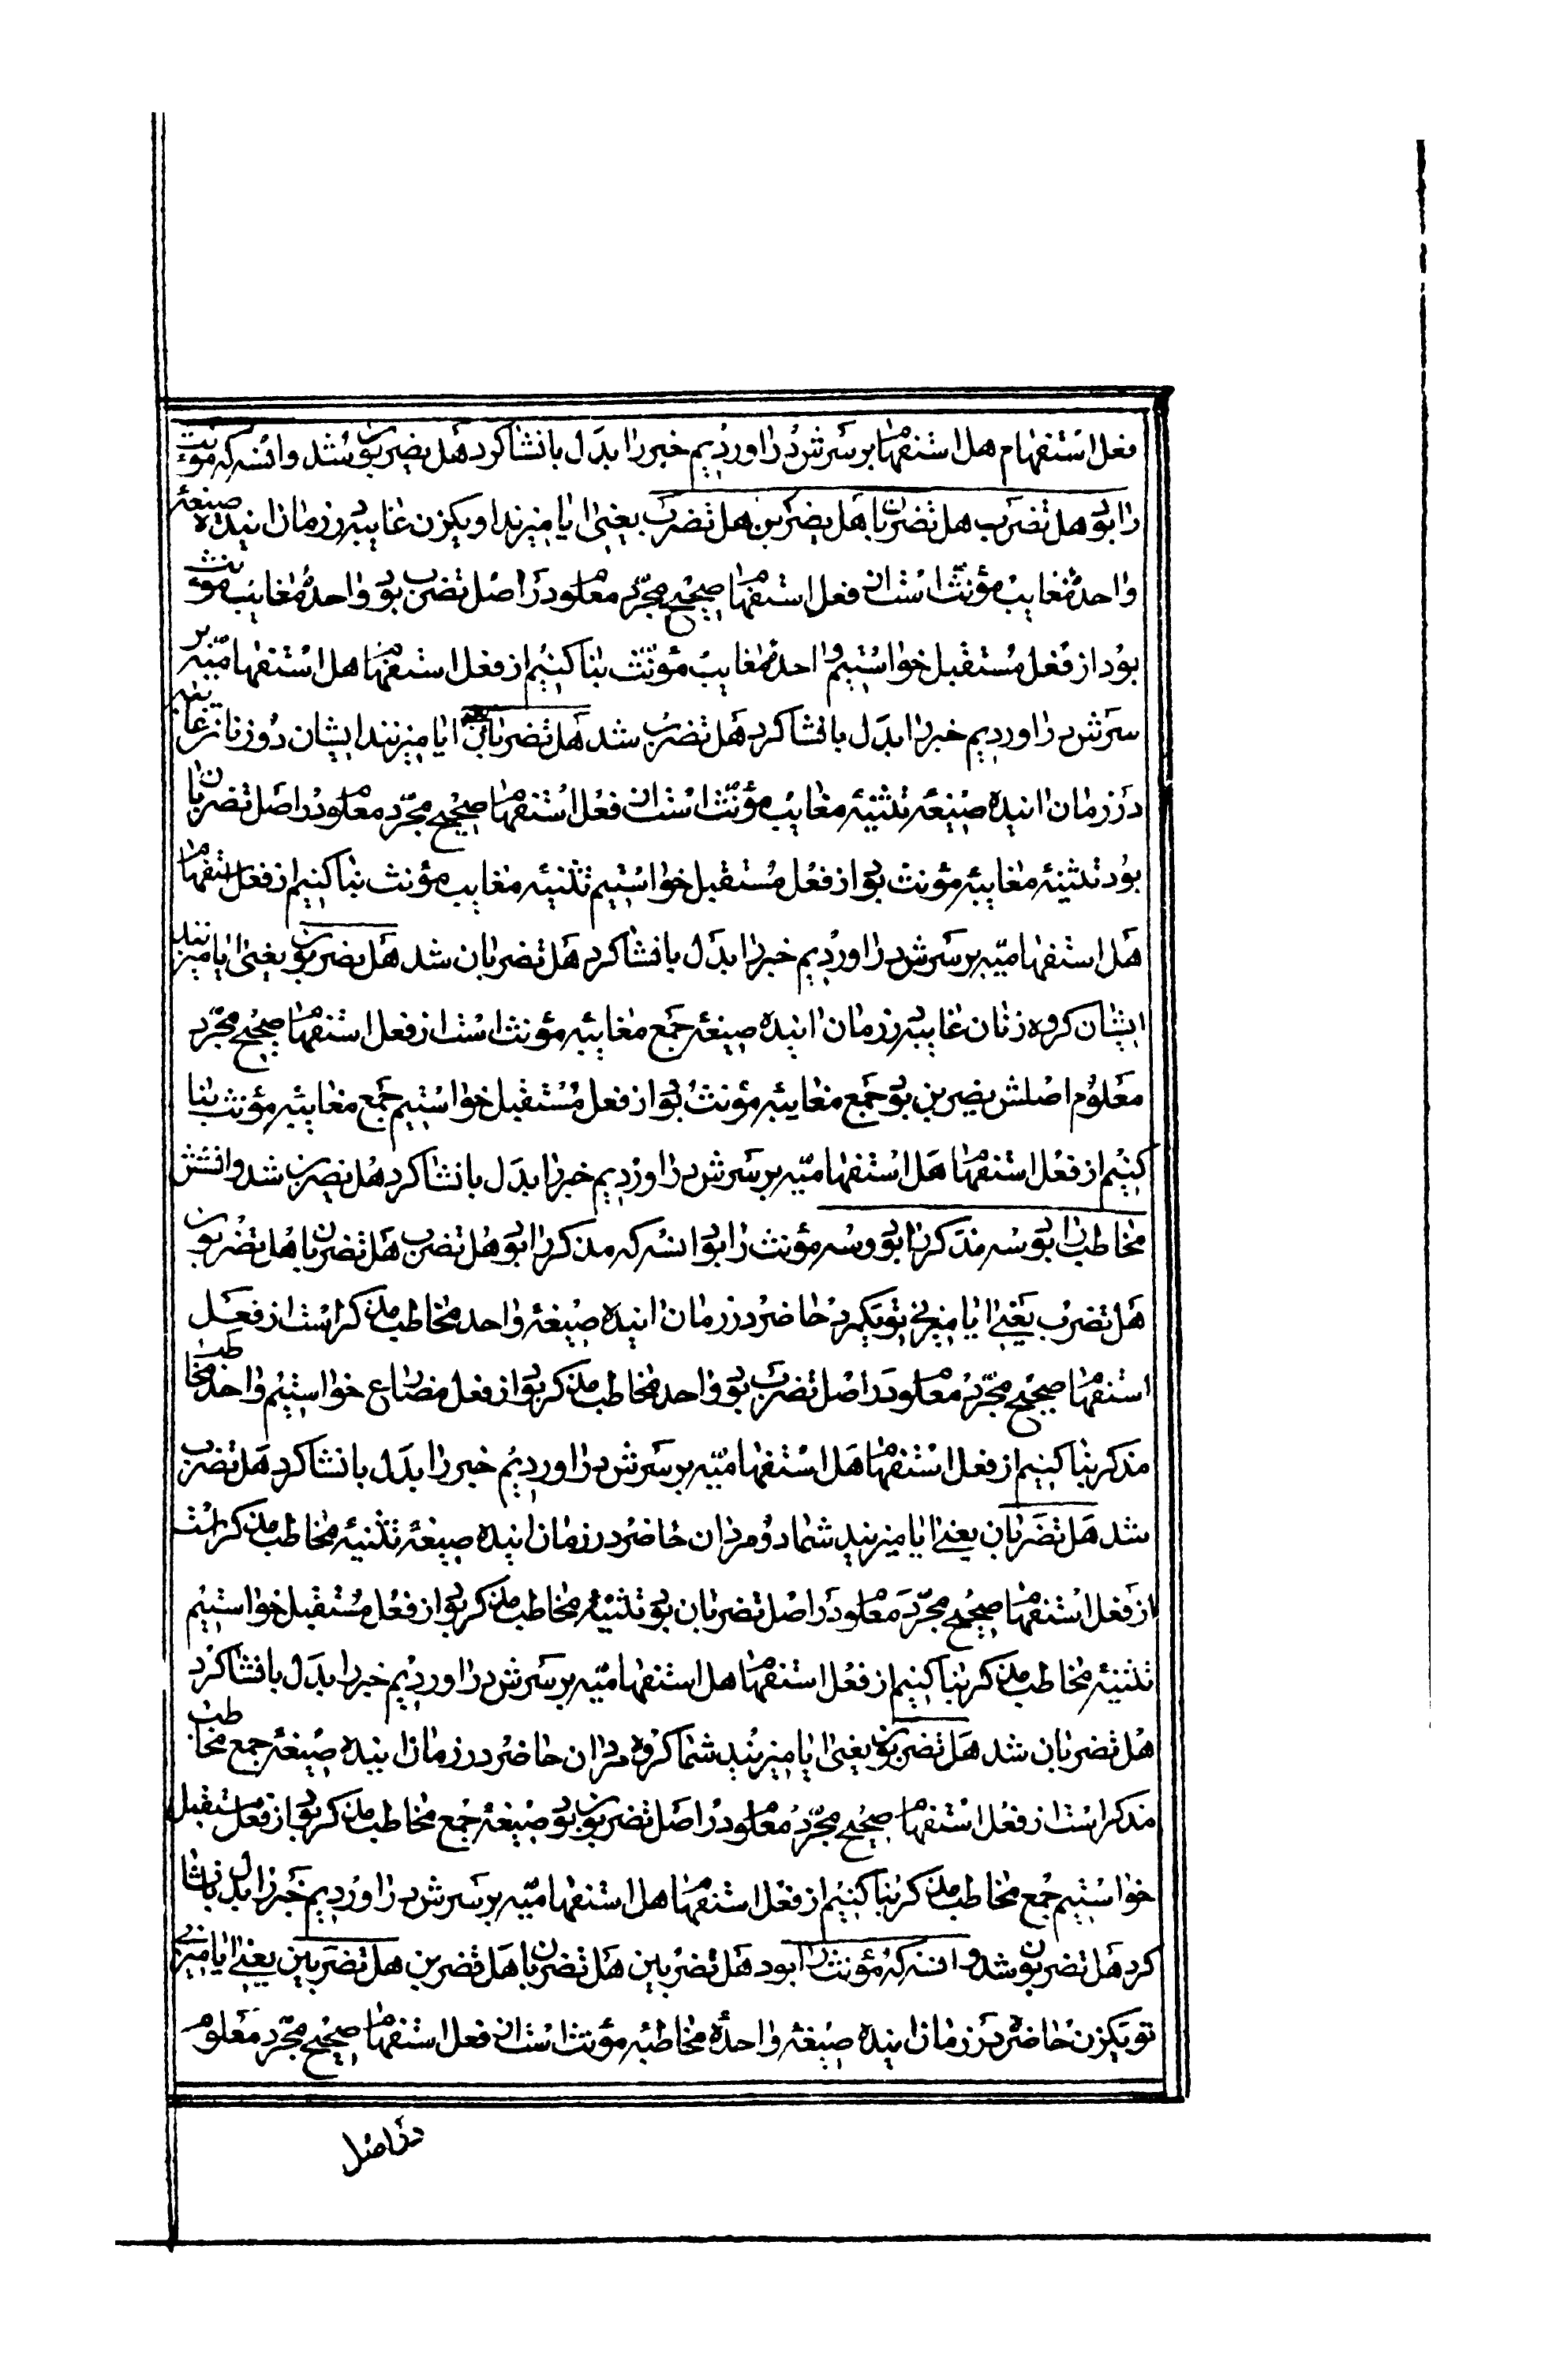 فعل استفهام هل استفهام بر سرش در اوردیم خبر را بدل بانشا کرد هل یضربون شد وان سه که مؤنث
را بود هل تضرب هل تضربان هل یضربن هل تضرب یعنی ایا میزند او یکزن غایبه در زمان اینده صیغه
واحده مغایب مؤنث است از فعل استفهام صحیح مجرد معلوم در اصل تضرب بود واحده مغایب مؤنث
بود از فعل مستقبل خواستیم واحده مغایب مؤنث بنا کنیم از فعل استفهام هل استفهامیه بر
سرش در اوردیم خبر را بدل بانشا کرد هل تضرب شد هل تضربان ایا میزنند ایشان دو زنان غایبه
در زمان اینده صیغه تثنیه مغایب مؤنث است از فعل استفهام صحیح مجرد معلوم در اصل تضربان
بود تثنیه مغایبه مؤنث بود از فعل مستقبل خواستیم تثنیه مغایب مؤنث بنا کنیم از فعل استفهام
هل استفهامیه بر سرش در اوردیم خبر را بدل بانشا کرد هل تضربان شد هل یضربن یعنی ایا میزنند
ایشان کروه زنان غایبه در زمان اینده صیغه جمع مغایبه مؤنث است از فعل استفهام صحیح مجرد
معلوم اصلش یضربن بود جمع مغایبه مؤنث بود از فعل مستقبل خواستیم جمع مغایبه مؤنث بنا
کنیم از فعل استفهام هل استفهامیه بر سرش در اوردیم خبر را بدل بانشا کرد هل یضربن شد وان شش
مخاطب را بود سه مذکر را بود و سه مؤنث را بود ان سه که مذکر را بود هل تضرب هل تضربان هل تضربون
هل تضرب یعنی ایا میزنی تو یکمرد حاضر در زمان اینده صیغه واحد مخاطب مذکر است از فعل
استفهام صحیح مجرد معلوم در اصل تضرب بود واحد مخاطب مذکر بود از فعل مضارع خواستیم واحد مخاطب
مذکر بنا کنیم از فعل استفهام هل استفهامیه بر سرش در اوردیم خبر را بدل بانشا کرد هل تضرب
شد هل تضربان یعنی ایا میزنید شما دو مردان حاضر در زمان اینده صیغه تثنیه مخاطب مذکر است
از فعل استفهام صحیح مجرد معلوم در اصل تضربان بود تثنیه مخاطب مذکر بود از فعل مستقبل خواستیم
تثنیه مخاطب مذکر بنا کنیم از فعل استفهام هل استفهامیه بر سرش در اوردیم خبر را بدل بانشا کرد
هل تضربان شد هل تضربون یعنی ایا میزنید شما کروه مردان حاضر در زمان اینده صیغه جمع مخاطب
مذکر است از فعل استفهام صحیح مجرد معلوم در اصل تضربون بود صیغه جمع مخاطب مذکر بود از فعل مستقبل
خواستیم جمع مخاطب مذکر بنا کنیم از فعل استفهام هل استفهامیه بر سرش در اوردیم خبر را بدل بانشا
کرد هل تضربون شد و ان سه که مؤنث را بود هل تضربین هل تضربان هل تضربن هل تضربین یعنی ایا میزنی
تو یکزن حاضره در زمان اینده صیغه واحده مخاطبه مؤنث است از فعل استفهام صحیح مجرد معلوم
در اصل